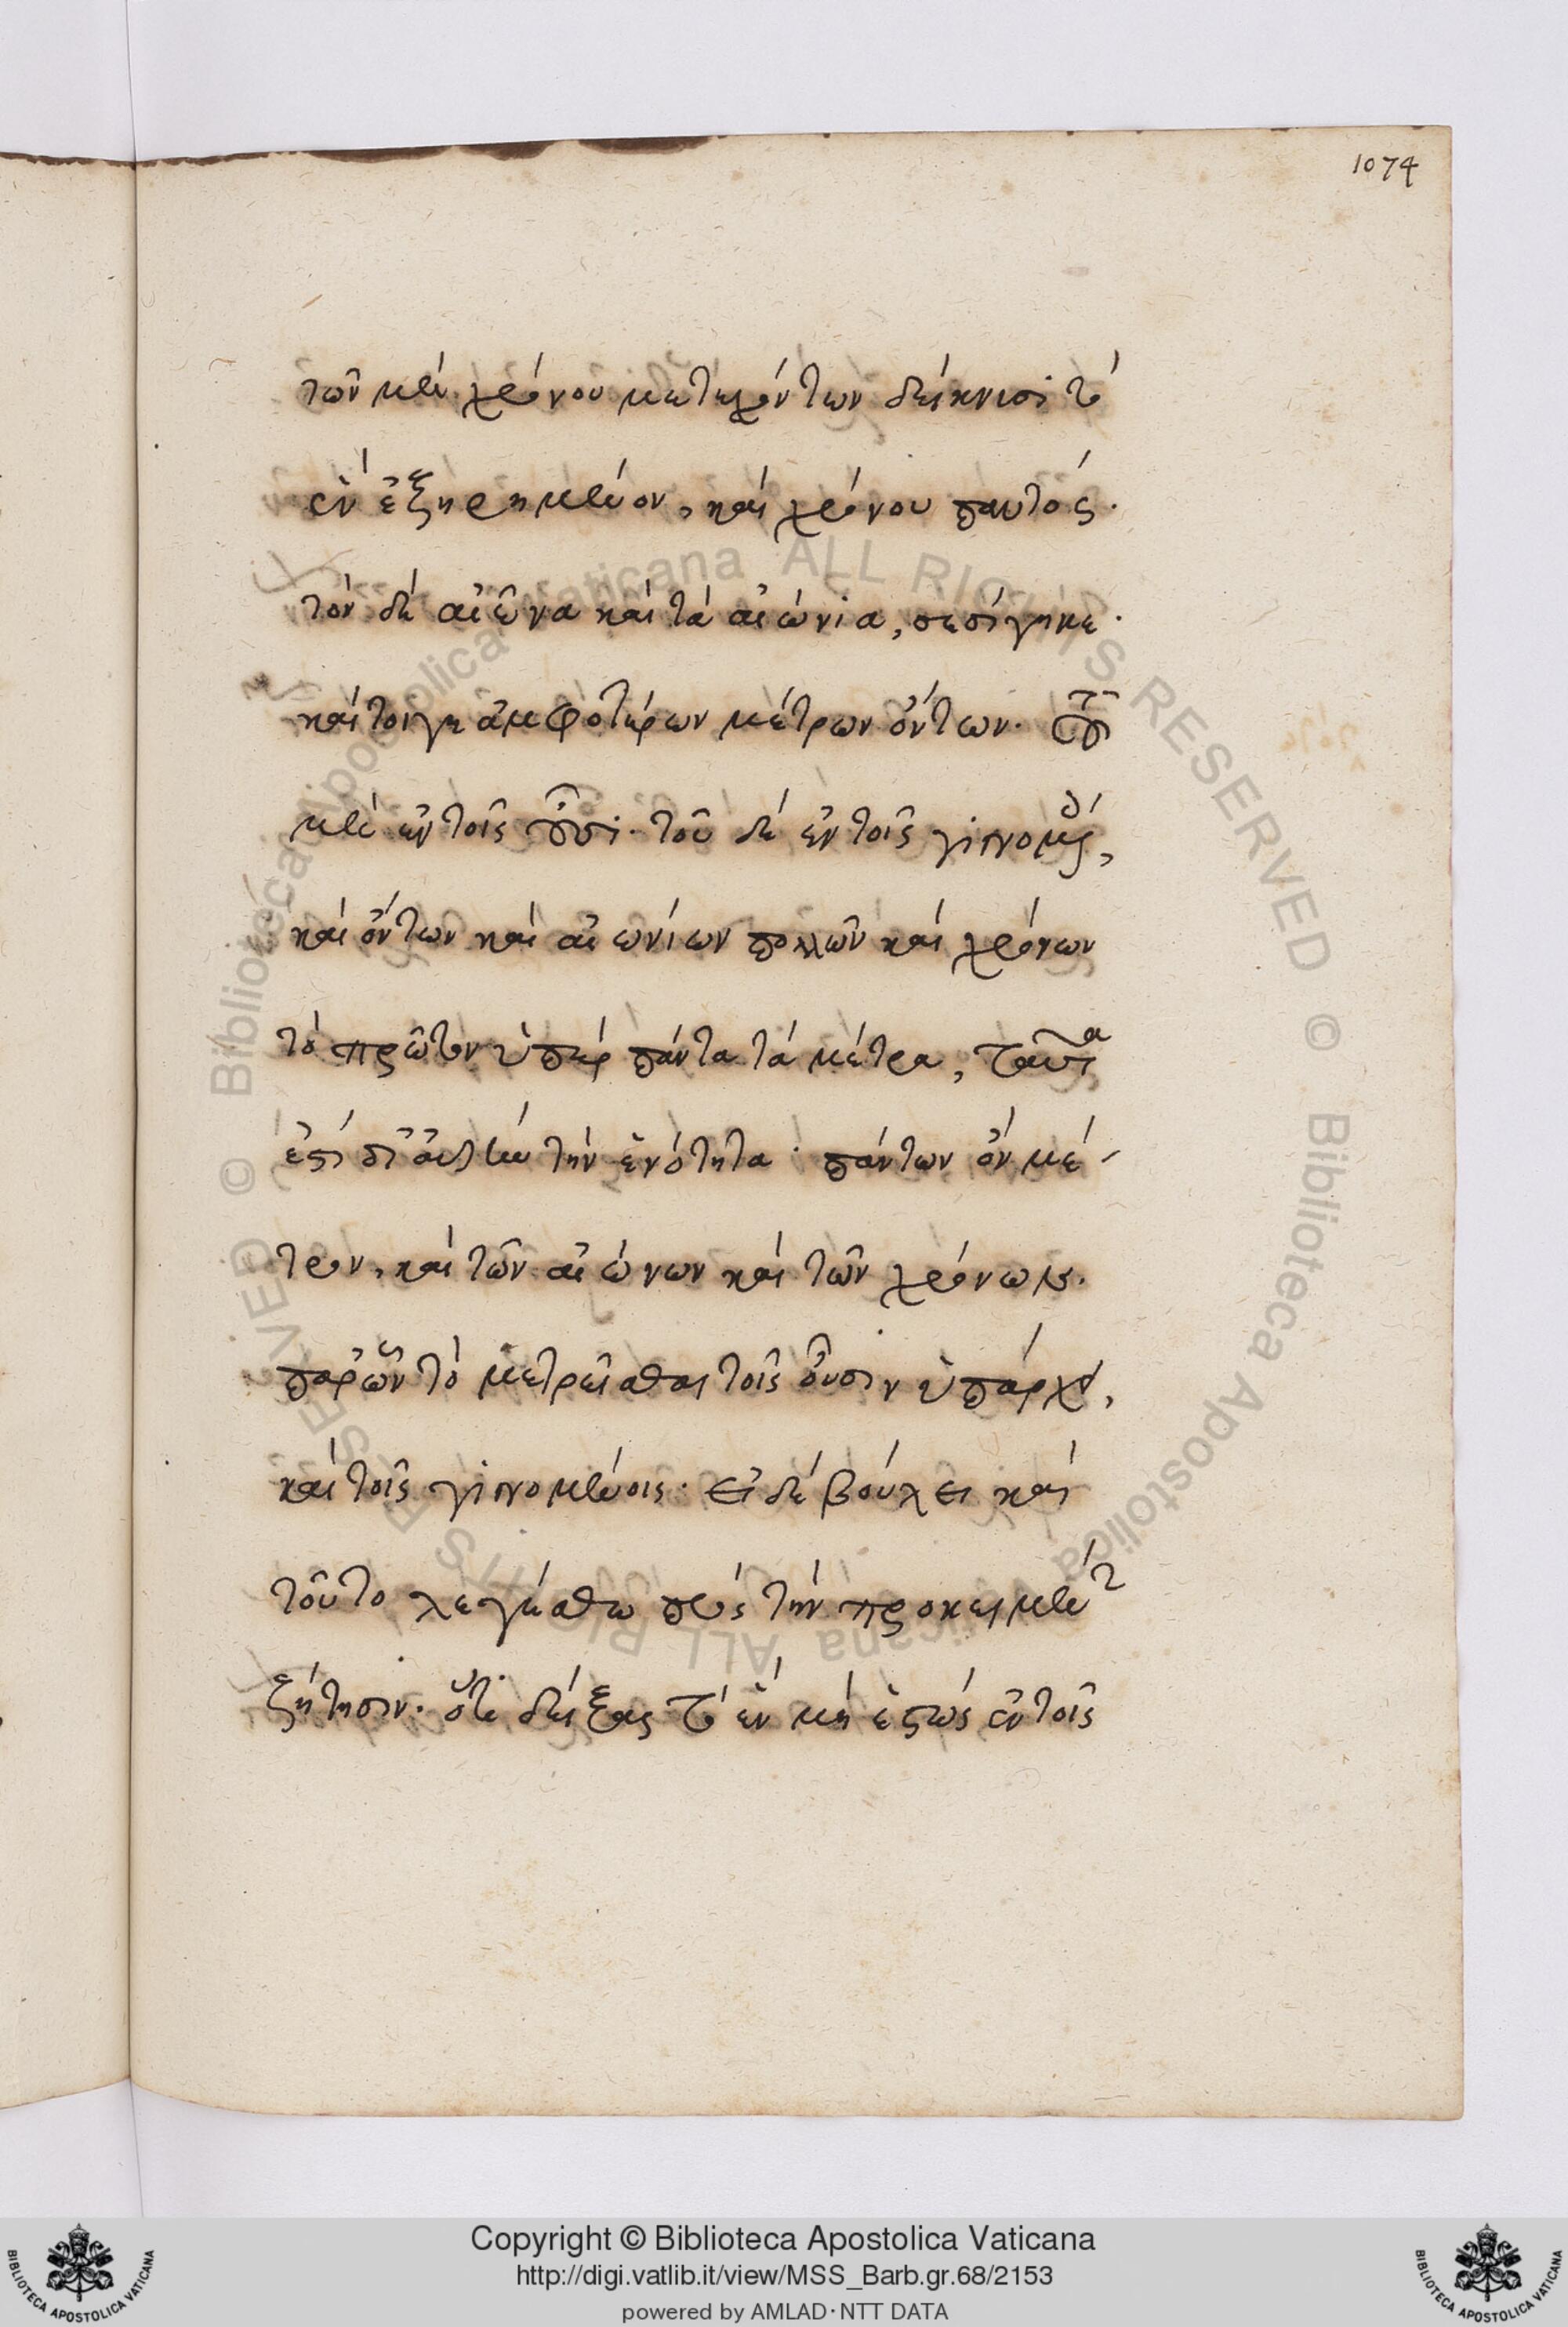 1074
τῶν μὲν χρόνου μετεχόντων δείκνυσι τὸ
ἓν ἐξηρημένον, καὶ χρόνου παντός.
τὸν δὲ αἰῶνα καὶ τὰ αἰώνια, σεσίγηκε.
καίτοιγε ἀμφοτέρων μέτρων ὄντων. τοῦ
μὲν ἐν τοῖς οὖσι. τοῦ δὲ ἐν τοῖς γινομένοις,
καὶ ὄντων καὶ αἰωνίων πολλῶν καὶ χρόνων
τὸ πρῶτον ὑπὲρ πάντα τὰ μέτρα, ταῦτα
ἐστὶ δι' αὐτὴν τὴν ἑνότητα. πάντων ὂν μέ-
τρον, καὶ τῶν αἰώνων καὶ τῶν χρόνων.
παρ' ὧν τὸ μετρεῖσθαι τοῖς οὖσιν ὑπάρχει,
καὶ τοῖς γινομένοις. εἰ δὲ βούλει καὶ
τοῦτο λεγέσθω πρὸς τὴν προκειμένην
ζήτησιν. ὅτι δείξας τὸ ἓν μὴ ἑστὼς ἐν τοῖς
Copyright © Biblioteca Apostolica Vaticana
http://digi.vatlib.it/view/MSS_Barb.gr.68/2153
powered by AMLAD·NTT DATA